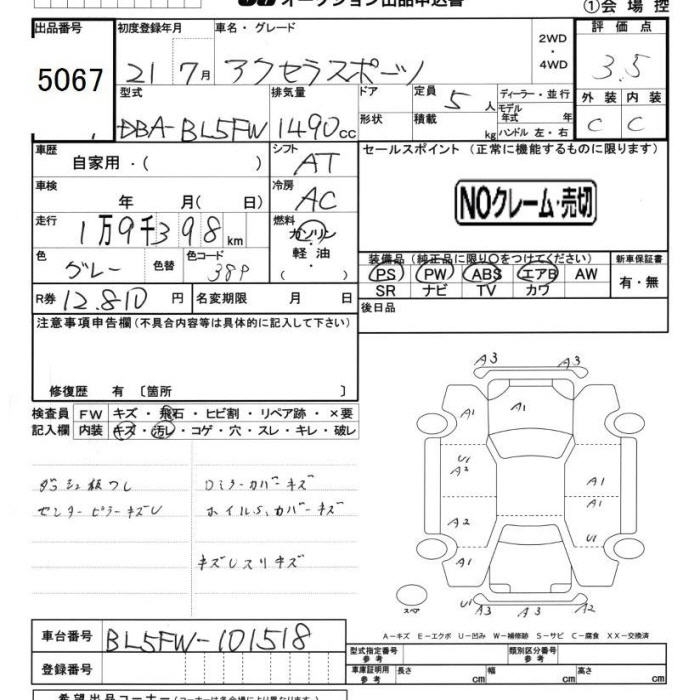 オークション出品申込書
①会場控
出品番号 初度登録年月 車名・グレード 2WD・4WD 評価点
5067 21 7月 アクセラスポーツ 3.5
型式 排気量 ドア 定員 5人 ディーラー・並行 外装 内装
DBA-BL5FW 1490cc 形状 積載 kg モデル年式 年 ハンドル 左・右 C C
車歴 シフト セールスポイント(正常に機能するものに限ります)
自家用・( ) AT
車検 冷房
年 月( 日) AC
NOクレーム・売切
走行 燃料
1万9千398km ガソリン・軽油・( )
色 色替 色コード 装備品(純正品に限り○をつけてください) 新車保証書
グレー 38P PS PW ABS エアB AW 有・無
SR ナビ TV カワ
R券 12,810円 名変期限 月 日 後日品
注意事項申告欄(不具合内容等は具体的に記入して下さい)
修復歴 有〔箇所 〕
検査員 FW キズ・飛石・ヒビ割・リペア跡・×要
記入欄 内装 キズ・汚レ・コゲ・穴・スレ・キレ・破レ
センターピラーキズU
ホイルS、カバーキズ
A3 A3
A1 A1 A1
U1
A2 A1
A1
A2 U1
A1 A1
スペア
A3 A3 A2
A-キズ E-エクボ U-凹み W-補修跡 S-サビ C-腐食 XX-交換済
車台番号 BL5FW-101518
型式指定番号 参考 類別区分番号 参考
登録番号 車庫証明用 参考 長さ cm 幅 cm 高さ cm
希望出品コーナー(コーナーは各会場により異なります)